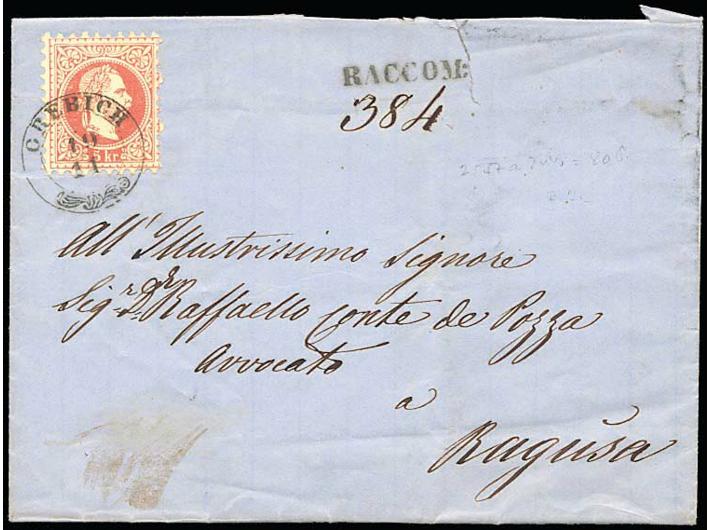 RACCOM:
384
OREBICH
10
11
5 kr
All' Illustrissimo Signore
Sig.r Dr Raffaello Conte de Pozza
Avvocato
a
Ragusa